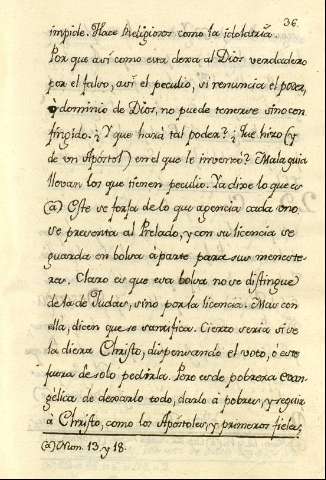 36.
impide. Hace Religiosos como la idolatria.
Por que así como esta dexa al Dios verdadero
por el falso, así el peculio, si renuncia el poder,
ò dominio de Dios, no puede tenerse sino con
fingido. ¿Y que hará tal poder? ¿Que hizo (y
de vn Apóstol) en el que le inventó? Mala guia
llevan los que tienen peculio. Ya dixe lo que es
(a) Este se forja de lo que agencia cada vno
se presenta al Prelado, y con su licencia se
guarda en bolsa à parte para sus meneste-
res. Claro es que esa bolsa no se distingue
de la de Judas, sino por la licencia. Mas con
ella, dicen que se santifica. Cierto seria si se
la diera Christo, dispensando el voto, ó este
fuera de solo pedirla. Pero es de pobreza Evan-
gélica de dexarlo todo, darlo à pobres, y seguir
à Christo, como los Apóstoles, y primeros fieles,
(a) Num. 13. y 18.